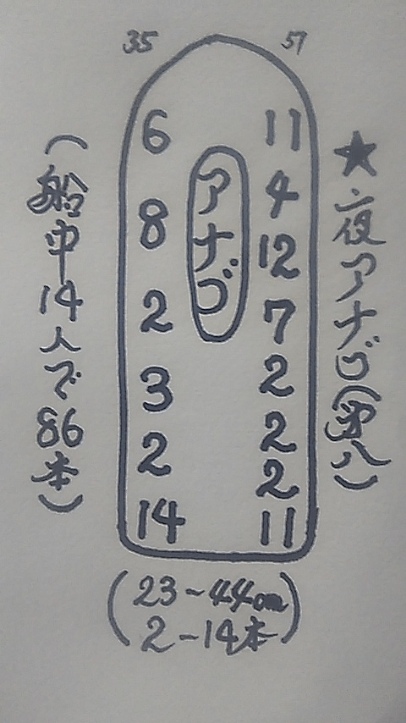 ★夜アナゴ(第八)
35 51
アナゴ
6 11
8 4
2 12
3 7
2 2
14 2
2
11
(船中14人で86本)
(23~44cm
2-14本)